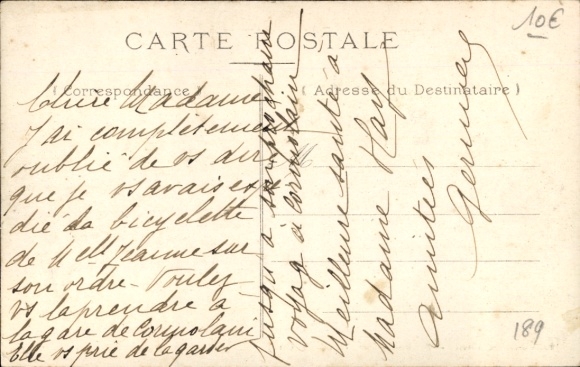 10€
CARTE POSTALE
(Correspondance)
(Adresse du Destinataire)
Chère Madame
J'ai complètement
oublié de vs dire
que je vs avais ex
dié la bicyclette
de Melle Jeanne sur
son ordre - Voulez
vs la prendre à
la gare de Cormolain
Elle vs prie de la garder
jusqu'à son prochain
voyage à Cormolain
Meilleure santé à
Madame Hay
Amitiés
Germaine
189